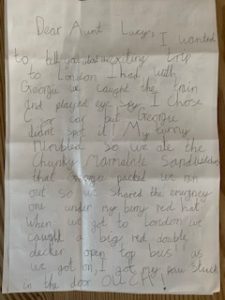 Dear Aunt Lucy, I wanted
to tell you about exciting trip
to London I had with
Georgie we caught the train
and played eye spy I chose
C for car but Georgie
didnt spot it! My tummy
so we ate the
Chunky Marmalade Sandwiches
that Georgie packed we
out so we shared the
one under my red hat
When we got to London we
caught a big red double
decker open top bus! as
we got on I got my paw stuck
in the door OUCH!